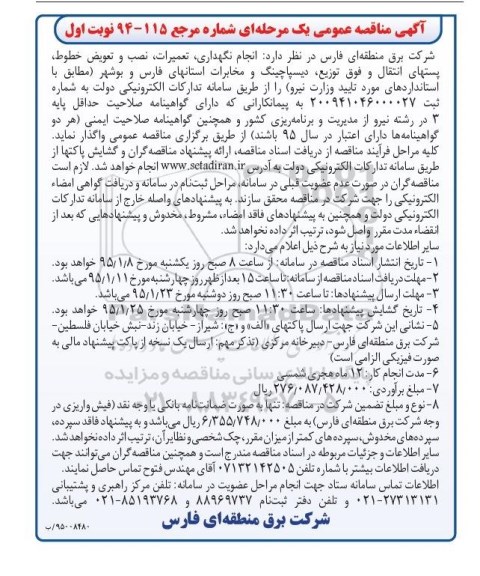 آگهی مناقصه عمومی یک مرحله‌ای شماره مرجع ۱۱۵-۹۴ نوبت اول
شرکت برق منطقه‌ای فارس در نظر دارد: انجام نگهداری، تعمیرات، نصب و تعویض خطوط،
پستهای انتقال و فوق توزیع، دیسپاچینگ و مخابرات استانهای فارس و بوشهر (مطابق با
استانداردهای مورد تایید وزارت نیرو) را از طریق سامانه تدارکات الکترونیکی دولت به شماره
ثبت ۲۰۰۹۴۱۰۴۶۰۰۰۰۲۷ به پیمانکارانی که دارای گواهینامه صلاحیت حداقل پایه
۳ در رشته نیرو از مدیریت و برنامه‌ریزی کشور و همچنین گواهینامه صلاحیت ایمنی (هر دو
گواهینامه‌ها دارای اعتبار در سال ۹۵ باشند) از طریق برگزاری مناقصه عمومی واگذار نماید.
کلیه مراحل فرآیند مناقصه از دریافت اسناد مناقصه، ارائه پیشنهاد مناقصه‌گران و گشایش پاکتها از
طریق سامانه تدارکات الکترونیکی دولت به آدرس www.setadiran.ir انجام خواهد شد. لازم است
مناقصه‌گران در صورت عدم عضویت قبلی در سامانه، مراحل ثبت‌نام در سامانه و دریافت گواهی امضاء
الکترونیکی را جهت شرکت در مناقصه محقق سازند. به پیشنهادهای واصله خارج از سامانه تدارکات
الکترونیکی دولت و همچنین به پیشنهادهای فاقد امضاء، مشروط، مخدوش و پیشنهادهایی که بعد از
انقضاء مدت مقرر واصل شود، ترتیب اثر داده نخواهد شد.
سایر اطلاعات مورد نیاز به شرح ذیل اعلام می‌دارد:
۱- تاریخ انتشار اسناد مناقصه در سامانه: از ساعت ۸ صبح روز یکشنبه مورخ ۹۵/۱/۸ خواهد بود.
۲- مهلت دریافت اسناد مناقصه از سامانه: تا ساعت ۱۵ بعد از ظهر روز چهارشنبه مورخ ۹۵/۱/۱۱ می‌باشد.
۳- مهلت ارسال پیشنهادها: تا ساعت ۱۱:۳۰ صبح روز دوشنبه مورخ ۹۵/۱/۲۳ می‌باشد.
۴- تاریخ گشایش پیشنهادها: ساعت ۱۱:۳۰ صبح روز چهارشنبه مورخ ۹۵/۱/۲۵ خواهد بود.
۵- نشانی این شرکت جهت ارسال پاکتهای «الف» و «ج»: شیراز- خیابان زند- نبش خیابان فلسطین-
شرکت برق منطقه‌ای فارس- دبیرخانه مرکزی (تذکر مهم: ارسال یک نسخه از پاکت پیشنهاد مالی به
صورت فیزیکی الزامی است)
۶- مدت انجام کار: ۱۲ ماه هجری شمسی
۷- مبلغ برآوردی: ۲۷۶/۰۸۷/۴۲۸/۰۰۰ ریال
۸- نوع و مبلغ تضمین شرکت در مناقصه: تنها به صورت ضمانت‌نامه بانکی یا وجه نقد (فیش واریزی در
وجه شرکت برق منطقه‌ای فارس) به مبلغ ۶/۳۵۵/۷۴۸/۰۰۰ ریال می‌باشد و به پیشنهاد فاقد سپرده،
سپرده‌های مخدوش، سپرده‌های کمتر از میزان مقرر، چک شخصی و نظایر آن، ترتیب اثر داده نخواهد شد.
سایر اطلاعات و جزئیات مربوطه در اسناد مناقصه مندرج است و همچنین مناقصه‌گران می‌توانند جهت
دریافت اطلاعات بیشتر با شماره تلفن ۰۷۱۳۲۱۴۲۵۰۵ آقای مهندس فتوح تماس حاصل نمایند.
اطلاعات تماس سامانه ستاد جهت انجام مراحل عضویت در سامانه: تلفن مرکز راهبری و پشتیبانی
۰۲۱-۲۷۳۱۳۱۳۱ و تلفن دفتر ثبت‌نام ۸۸۹۶۹۷۳۷ و ۰۲۱-۸۵۱۹۳۷۶۸ می‌باشد.
شرکت برق منطقه‌ای فارس
۹۵۰۰۸۴۸۰/ب